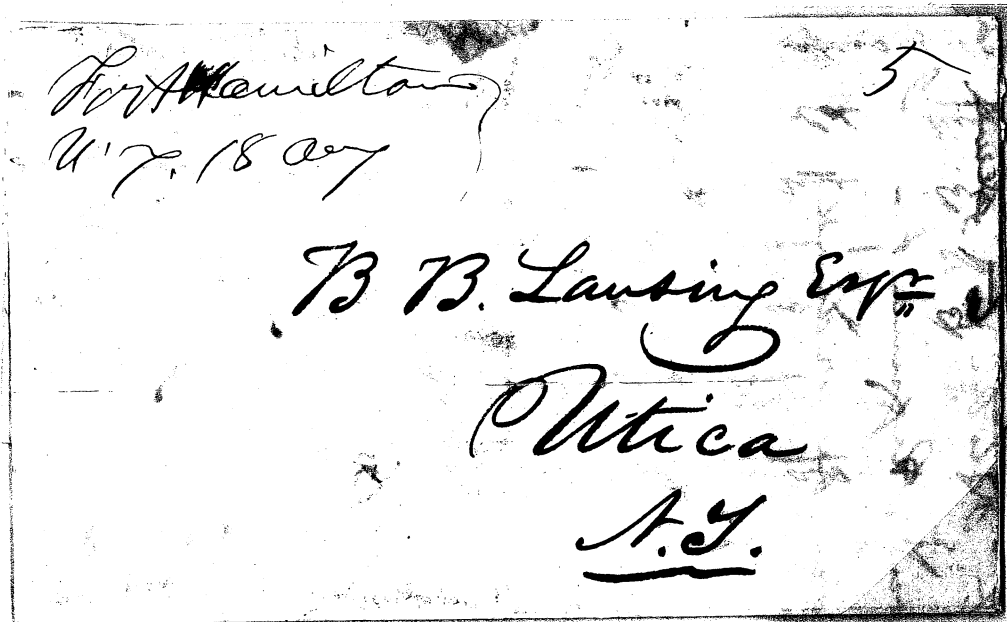 Fort Hamilton 5
N.Y. 18 Aug
B B. Lansing Esqr
Utica
N.Y.